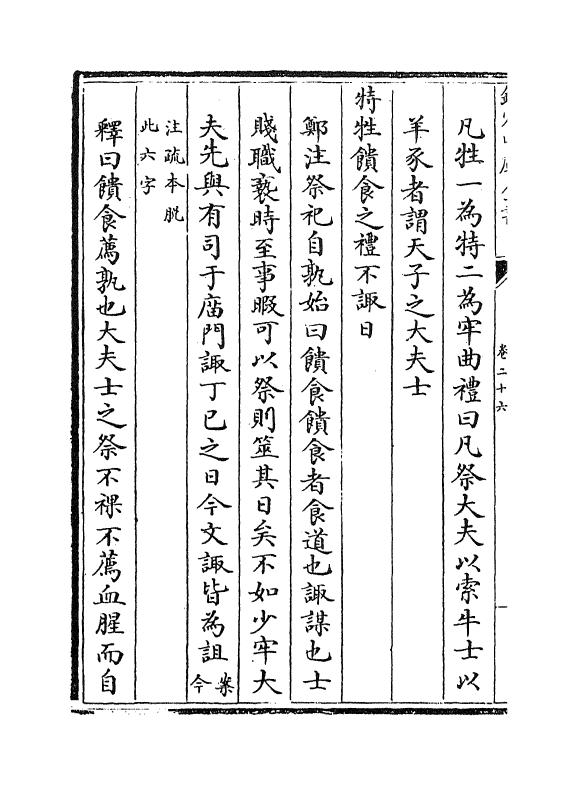 卷二十六
凡牲一為特二為牢曲禮曰凡祭大夫以索牛士以
羊豕者謂天子之大夫士
特牲饋食之禮不諏日
鄭注祭祀自孰始曰饋食饋食者食道也諏謀也士
賤職䙝時至事暇可以祭則筮其日矣不如少牢大
夫先與有司于廟門諏丁已之日今文諏皆為詛案今
注疏本脱
此六字
釋曰饋食薦孰也大夫士之祭不祼不薦血腥而自